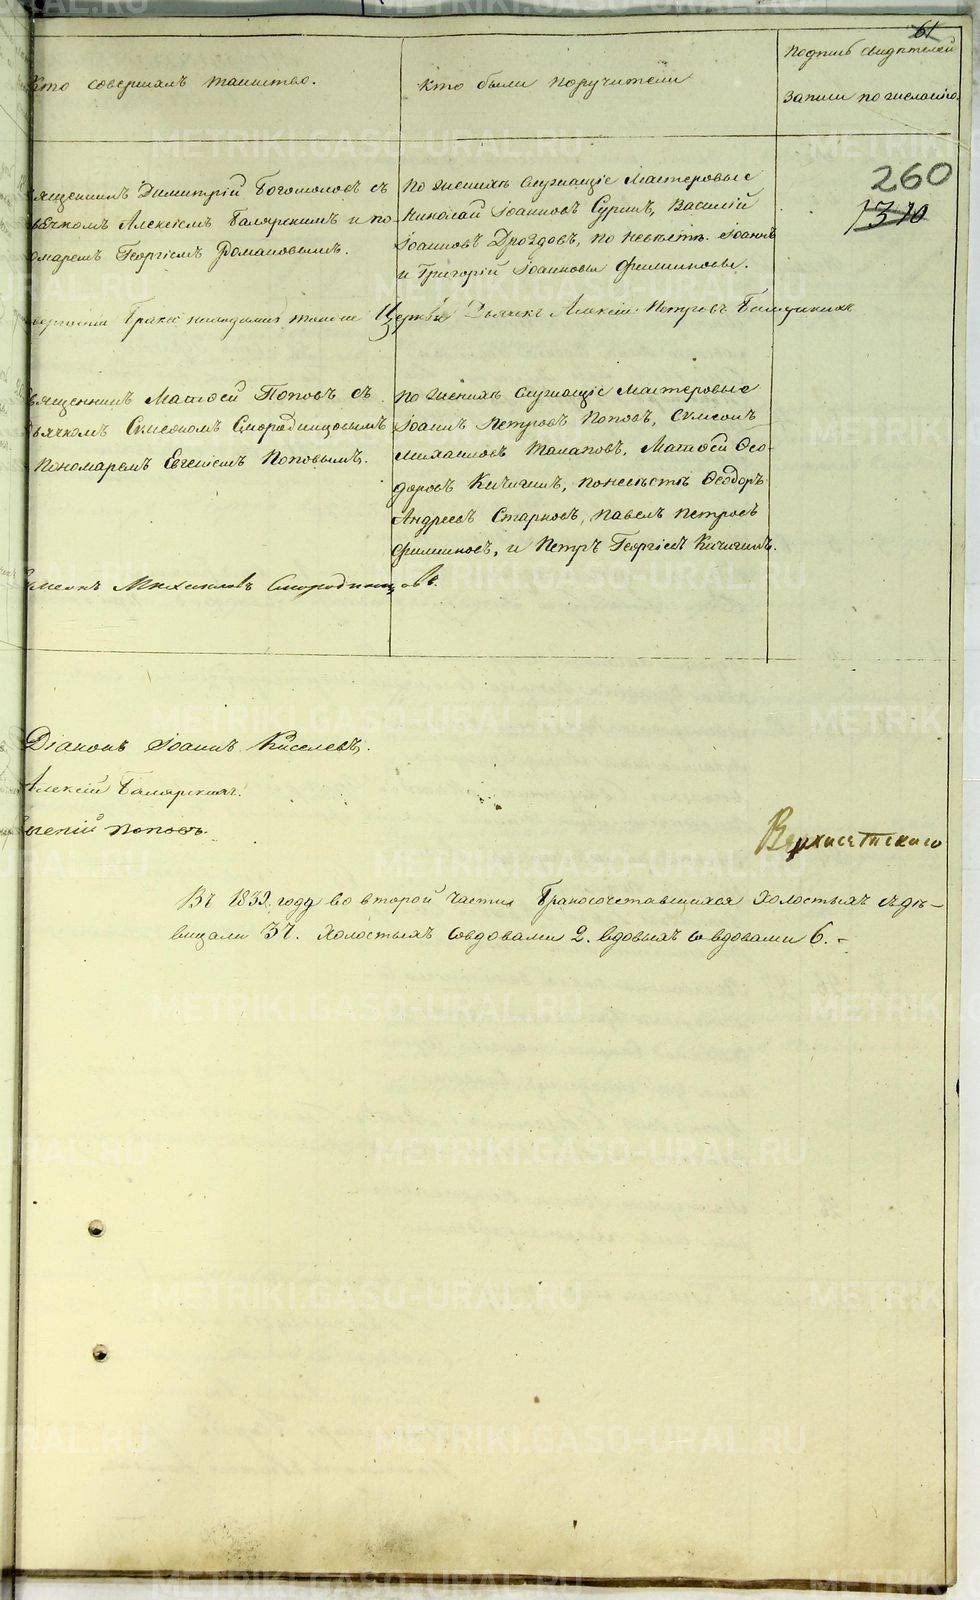 61
Кто совершалъ таинство.
Кто были поручители
Подпись свидѣтелей
записи по желанію.
260
370
Священникъ Димитрій Богомоловъ съ
дьячкомъ Алексѣемъ Балярскимъ и по-
номаремъ Георгіемъ Романовымъ.
По женихѣ Служащіе Мастеровые
Николай Іоанновъ Суринъ, Василій
Іоанновъ Дроздовъ, по невѣстѣ Іоаннъ
и Григорій Іоанновы Филинковы.
Церкви Дьячекъ Алексій Петровъ
Священникъ Матѳей Поповъ съ
дьячкомъ Симеономъ Смородинцовымъ
Пономаремъ Евгеніемъ Поповымъ.
По женихѣ Служащіе Мастеровые
Іоаннъ Петровъ Поповъ, Симеонъ
Михаиловъ Талаповъ, Матѳей Ѳео-
доровъ Кичигинъ, по невѣстѣ Ѳеодоръ
Андреевъ Старковъ, Павелъ Петровъ
Филинковъ, и Петръ Георгіевъ Кичигинъ.
Симеонъ Михаиловъ Смородинцовъ.
Діаконъ Іоаннъ Киселевъ.
Алексій Балярскихъ.
Евгеній Поповъ.
Верхисетскаго
Въ 1832 году во второй части Бракосочетавшихся Холостыхъ съ дѣ-
вицами 37. Холостыхъ со вдовами 2. Вдовыхъ со вдовами 6.
METRIKI.GASO-URAL.RU